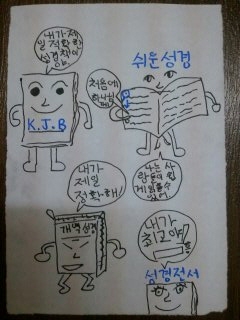 내가 제
일 적확한
성경책이
K.J.B
쉬운성경
처음에
하나님
나는 사
람들이 쉽
게 읽을수
있어
내가
제일
정확해!
개역 성경
내가
최고야!
성경전서